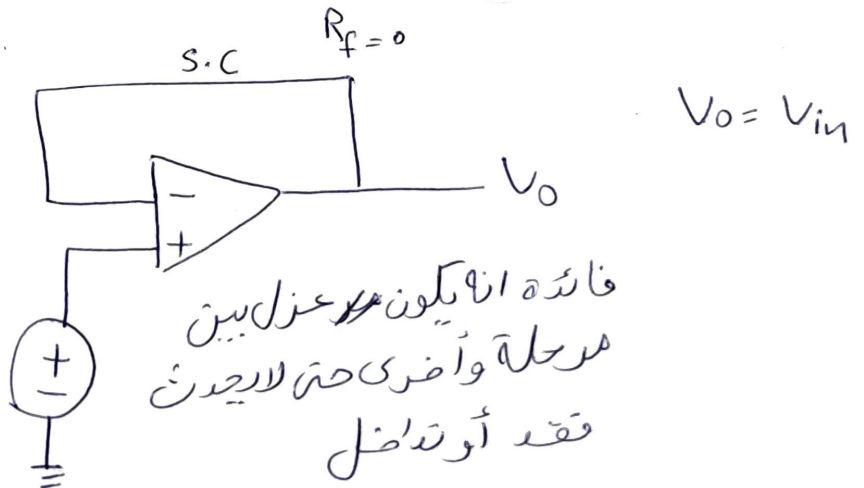 R_f = 0
S.C
V_o = V_in
−
V_o
+
فائدة انه يكون عزل بين
+
مرحلة وأخرى حتى لا يحدث
−
فقد أو تداخل